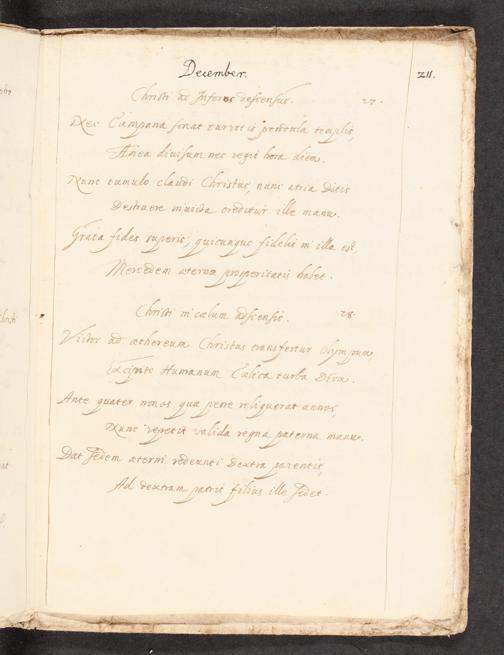 December. 211.
Christi ad Inferos descensus. 27.
Nec Campana sonat turritis pendula templis,
Ænea diuisum nec regit hora diem.
Nunc tumulo claudi Christus, nunc atria Ditis
Destruere inuicta creditur ille manu.
Grata fides superis, quicunque fidelis in illa est,
Mercedem æternæ prosperitatis habet.
Christi in cælum adscensio. 28.
Victor ad æthereum Christus transfertur Olympum,
Excipite Humanum Cælica turba Deum.
Ante quater nonos quæ pene reliquerat annos,
Nunc repetit valida regna paterna manu.
Dat sedem æterni redeunti dextra parentis,
Ad dextram patris filius ille sedet.